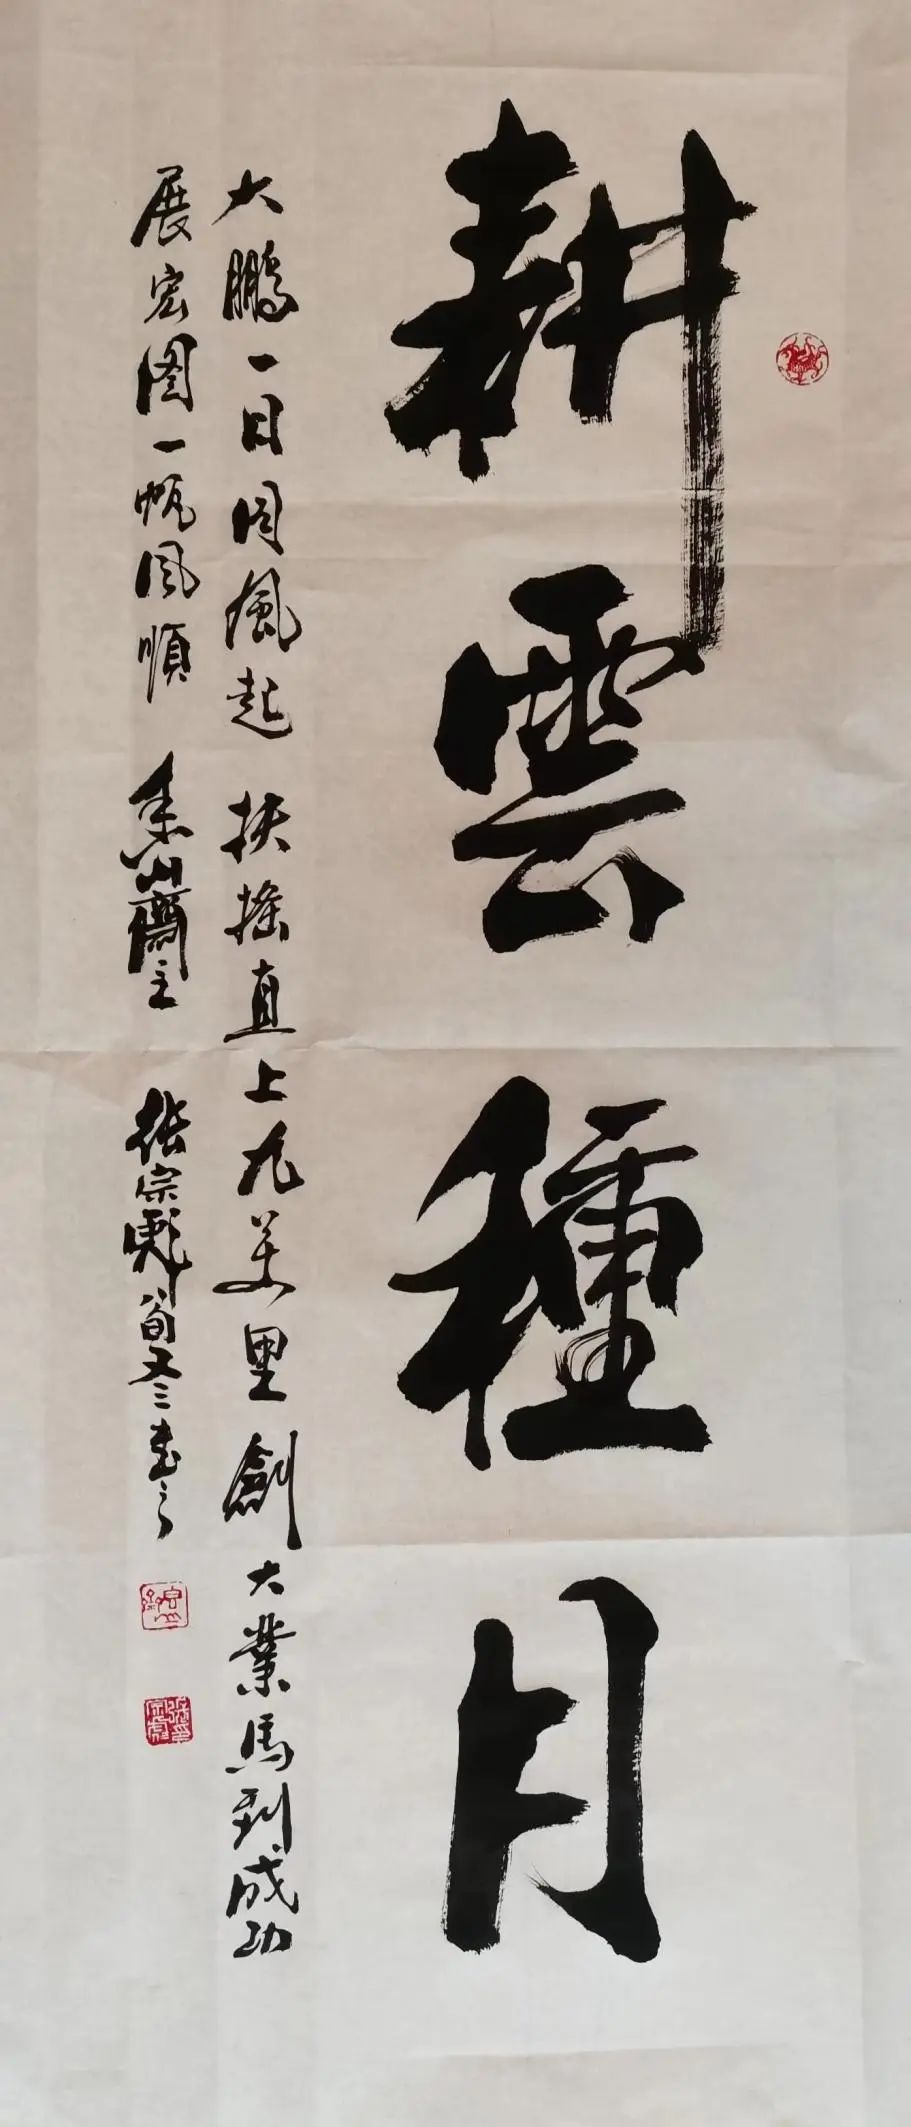 耕雲種月
大鵬一日同風起 扶搖直上九萬里 創大業馬到成功
展宏图一帆风順 山齋主 張宗彪 書